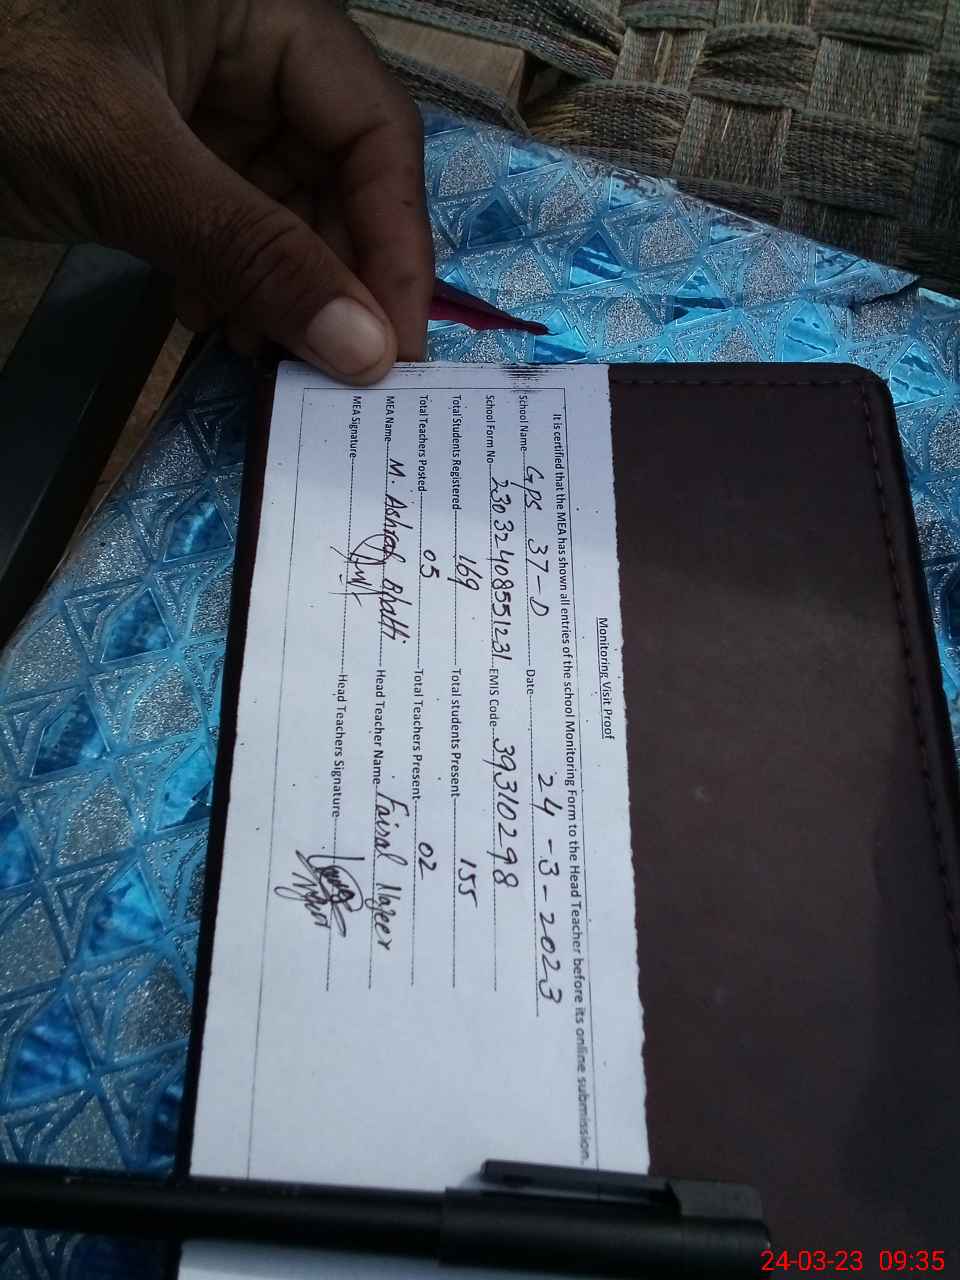 Monitoring Visit Proof
It is certified that the MEA has shown all entries of the school Monitoring Form to the Head Teacher before its online submission.
School Name GPS 37-D Date 24-3-2023
School Form No 23032408551231 EMIS Code 39310298
Total Students Registered 169 Total students Present 155
Total Teachers Posted 05 Total Teachers Present 02
MEA Name M. Ashraf Bhatti Head Teacher Name Faisal Nazeer
MEA Signature Head Teachers Signature
24-03-23 09:35